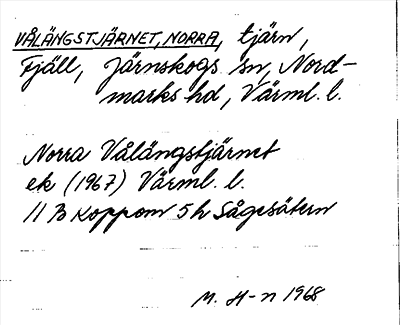 VÅLÄNGSTJÄRNET, NORRA, tjärn,
Fjäll, Järnskogs sn, Nord-
marks hd, Värml. l.
Norra Vålängstjärnet
ek (1967) Värml. l.
11 B Koppom 5 h Sågesätern
M. H-n 1968